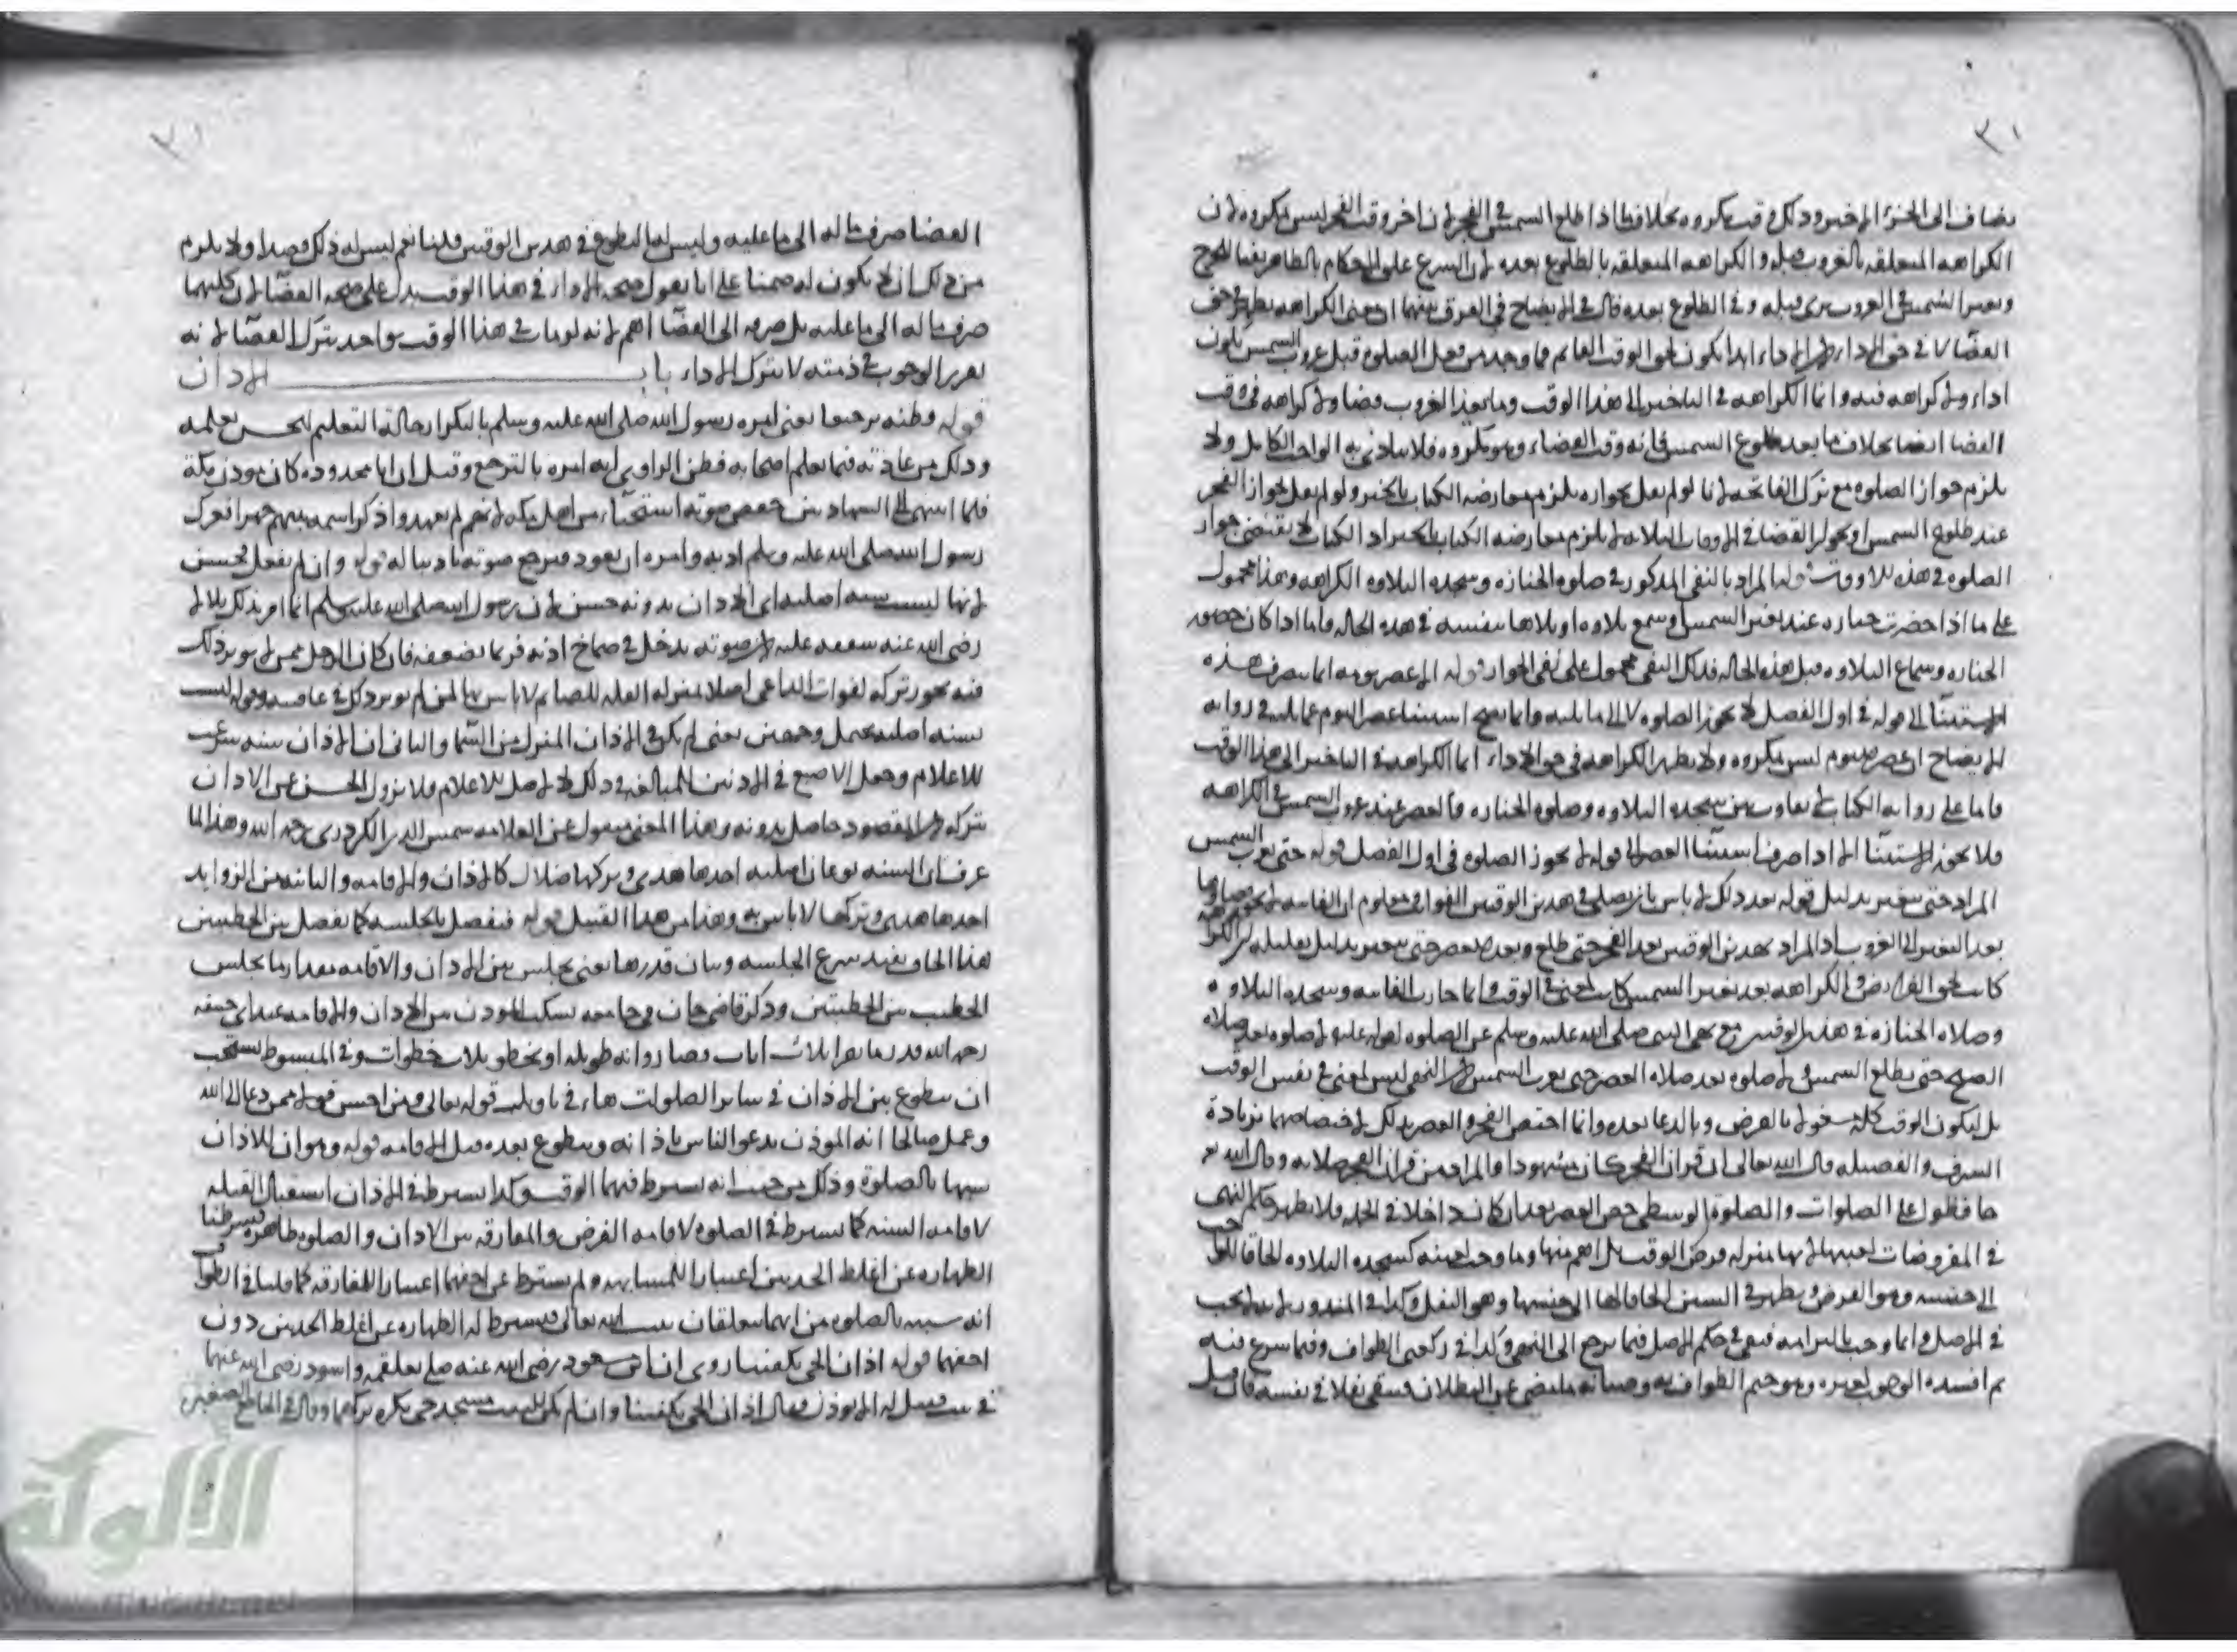 يضاف الى الجزء الاخير وذلك وقت مكروه بخلاف ما اذا طلع الشمس في الفجر لان اخر وقت الفجر ليس بمكروه لان
الكراهه المتعلقه بالغروب قبله والكراهه المتعلقه بالطلوع بعده لان الشرع علق الاحكام بالظاهر نفيا للحرج
في الغروب يرى قبله وفي الطلوع بعده قال في الايضاح في الفرق بينهما ان معنى الكراهه يظهر في حق
القضا لا في حق الاداء لان الاداء انما يكون لحق الوقت القايم فما وجد من فعل الصلوه قبل غروب الشمس يكون
اداء ولا كراهه فيه وانما الكراهه في التاخير الى هذا الوقت وما بعد الغروب قضا ولا كراهه في وقت
القضا ايضا بخلاف ما بعد طلوع الشمس فانه وقت القضاء وهو مكروه فلا يتادى به الواجب الكامل ولا
يلزم جواز الصلوه مع ترك الفاتحه لانا لو لم نقل بجوازه يلزم معارضه الكتاب بالخبر ولو لم نقل بجواز الفجر
عند طلوع الشمس او بجواز القضا في الاوقات الثلاثه لا يلزم معارضه الكتاب بالخبر اذ الكتاب لا يقتضي جواز
الصلوه في هذه الاوقات قوله المراد بالنفي المذكور في صلوه الجنازه وسجده التلاوه الكراهه وهذا محمول
على ما اذا حضرت جنازه عند تغير الشمس او سمع تلاوه او تلاها بنفسه في هذه الحاله واما اذا كان حضور
الجنازه وسماع التلاوه قبل هذه الحاله فذلك النفي محمول على نفي الجواز قوله الا عصر يومه انما ينصرف هذه
الاستثنا الى قوله في اول الفصل لا تجوز الصلوه لا الى ما يليه وانما يصح استثنا عصر اليوم عما يليه في روايه
الايضاح ان عصر يومه ليس بمكروه ولا يظهر الكراهه في حق الاداء انما الكراهه في التاخير الى هذا الوقت
فاما على روايه الكتاب لا تفاوت بين سجده التلاوه وصلوه الجنازه والعصر عند غروب الشمس في الكراهه
فلا يجوز الاستثنا الا اذا صرف استثنا العصر الى قوله لا تجوز الصلوه في اول الفصل قوله حتى تغرب الشمس
المراد حتى تتغير بدليل قوله بعد ذلك لا باس بان يصلي في هذين الوقتين الفوايت ومعلوم ان الفايته لا يجوز قضاوها
بعد التغير الى الغروب اذ المراد بهذين الوقتين بعد الفجر حتى تطلع وبعد العصر حتى تتغير بدليل تعليله لان الكراهه
كانت لحق الفرايض والكراهه بعد تغير الشمس كانت لمعنى في الوقت وانما جازت الفايته وسجده التلاوه
وصلاه الجنازه في هذين الوقتين مع نهي النبي صلى الله عليه وسلم عن الصلوه لقوله عليه لا صلوه بعد صلاه
الصبح حتى تطلع الشمس ولا صلوه بعد صلاه العصر حتى تغرب الشمس لان النهي ليس لمعنى في نفس الوقت
بل ليكون الوقت كله مشغولا بالفرض وبالدعا بعده وانما اختص الفجر والعصر بذلك لاختصاصهما بزيادة
الشرف والفضيله قال الله تعالى ان قران الفجر كان مشهودا والمراد من قران الفجر صلاته وقال الله تع
حافظوا على الصلوات والصلوة الوسطى خص العصر بعد ان كانت داخلا في الجمله فلا يظهر حكم النهي
في المفروضات لعينها لانها بمنزله فرض الوقت بل اهم منها وما وجب لعينه كسجده التلاوه لحاقا
الى جنسه وهو الفرض ويظهر في السنن الحاقا لها الى جنسها وهو النفل وكذا في المنذور لانه لم يجب
في الاصل وانما وجب بالتزامه فبقي في حكم الاصل فيما يرجع الى النهي وكذا في ركعتي الطواف وفيما شرع فيه
ثم افسده لان الوجوب لغيره وهو ختم الطواف به وصيانه ما مضى عن البطلان فبقي نفلا في نفسه فان قيل
القضا صرف ماله الى ما عليه وليس له التطوع في هذين الوقتين قلنا نعم ليس له ذلك قصدا ولا يلزم
من ذلك ان لا يكون له ضمنا على انا نقول صحه الاداء في هذا الوقت يدل على صحه القضا لان كليهما
صرف ماله الى ما عليه بل صرفه الى القضا اهم لانه لو مات في هذا الوقت يواخذ بترك القضا لانه
تقرر الوجوب في ذمته لا بترك الاداء باب الاذان
قوله وظنه ترجيعا يعني امره رسول الله صلى الله عليه وسلم بالتكرار حالة التعليم ليحسن تعلمه
وذلك من عادته فيما يعلم اصحابه فظن الراوي انه امره بالترجيع وقيل ان ابا محذوره كان موذن مكة
فلما انتهى الى الشهادتين خفض صوته استحياء من اهل مكه لانهم لم يعهدوا ذكر اسمه بينهم جهرا فعرك
رسول الله صلى الله عليه وسلم اذنه وامره ان يعود فيرجع صوته تاديبا له قوله وان لم يفعل فحسن
لانها ليست سنه اصليه اي الاذان بدونه حسن لان رسول الله صلى الله عليه وسلم انما امر بذلك بلالا
رضي الله عنه شفقه عليه لان صوته يدخل في صماخ اذنه فربما يضعفه فان كان الرجل ممن لا يوثر ذلك
فيه يجوز تركه لفوات الداعي اصلا بمنزله القبله للصايم لا باس بها لمن لم يوثر ذلك في عاقبه وقوله ليست
بسنه اصليه يحتمل وجهين يعني لم يكن في الاذان المنزل من السما والثاني ان الاذان سنه شرعت
للاعلام وجعل الاصبع في الاذنين للمبالغه في ذلك لا لاصل الاعلام فلا يزول الحسن عن الاذان
بتركه لان المقصود حاصل بدونه وهذا المعنى منقول عن العلامه شمس الدين الكردري رحمه الله وهذا لما
عرف ان السنه نوعان اصليه اخذها هدى وتركها ضلال كالاذان والاقامه والثانيه من الزوايد
اخذها هدى وتركها لا باس به وهذا من هذا القبيل قوله فيفصل بالجلسه كما يفصل بين الخطبتين
هذا الحاق يفيد شرع الجلسه وبيان قدرها يعني يجلس بين الاذان والاقامه مقدار ما يجلس
الخطيب بين الخطبتين وذكر قاضي خان في جامعه يسكت الموذن بين الاذان والاقامه عند ابي حنيفه
رحمه الله قدر ما يقرا ثلاث ايات قصار وايه طويله او يخطو ثلاث خطوات وفي المبسوط يستحب
ان يتطوع بين الاذان في ساير الصلوات جاء في تاويل قوله تعالى ومن احسن قولا ممن دعا الى الله
وعمل صالحا انه الموذن يدعو الناس باذانه ويتطوع بعده قبل الاقامه قوله وهو ان للاذان
شبها بالصلوة وذلك من حيث انه يشترط فيهما الوقت وكذا يشترط في الاذان استقبال القبله
لاقامه السنه كما يشترط في الصلوه لاقامه الفرض والمفارقه بين الاذان والصلوه ظاهره فشرطنا
الطهاره عن اغلظ الحدثين اعتبارا للمشابهه ولم يشترط عن اخفهما اعتبارا للمفارقه كما قلنا في الطواف
انه شبيه بالصلوه من انهما متعلقان ببيت الله تعالى فيشترط له الطهاره عن اغلظ الحدثين دون
اخفهما قوله اذان الحي يكفينا روى ان ابن مسعود رضي الله عنه صلى بعلقمه واسود رضي الله عنهما
في بيت فقيل له الا نوذن فقال اذان الحي يكفينا وان لم يكن للبيت مسجد حي يكره تركهما وقال في الجامع الصغير
الألوكة